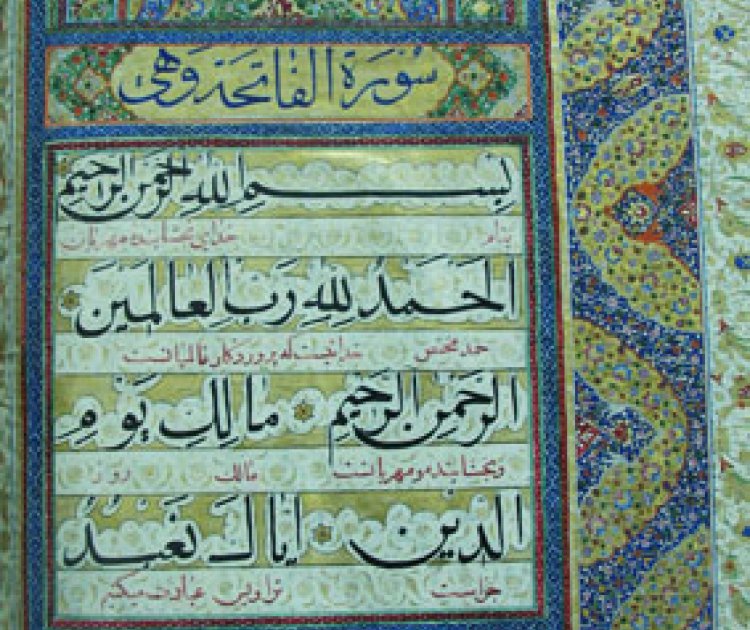 سورة الفاتحة وهى
بِسْمِ اللهِ الرَّحْمٰنِ الرَّحِيمِ
بنام خدای بخشاینده مهربان
اَلْحَمْدُ لِلّٰهِ رَبِّ الْعَالَمِينَ
حمد مختص خدائیست که پروردگار عالمیانست
الرَّحْمٰنِ الرَّحِيمِ مَالِكِ يَوْمِ
و بخشاینده و مهربانست مالک روز
الدِّينِ اِيَّاكَ نَعْبُدُ
جزاست ترا عبادت میکنیم